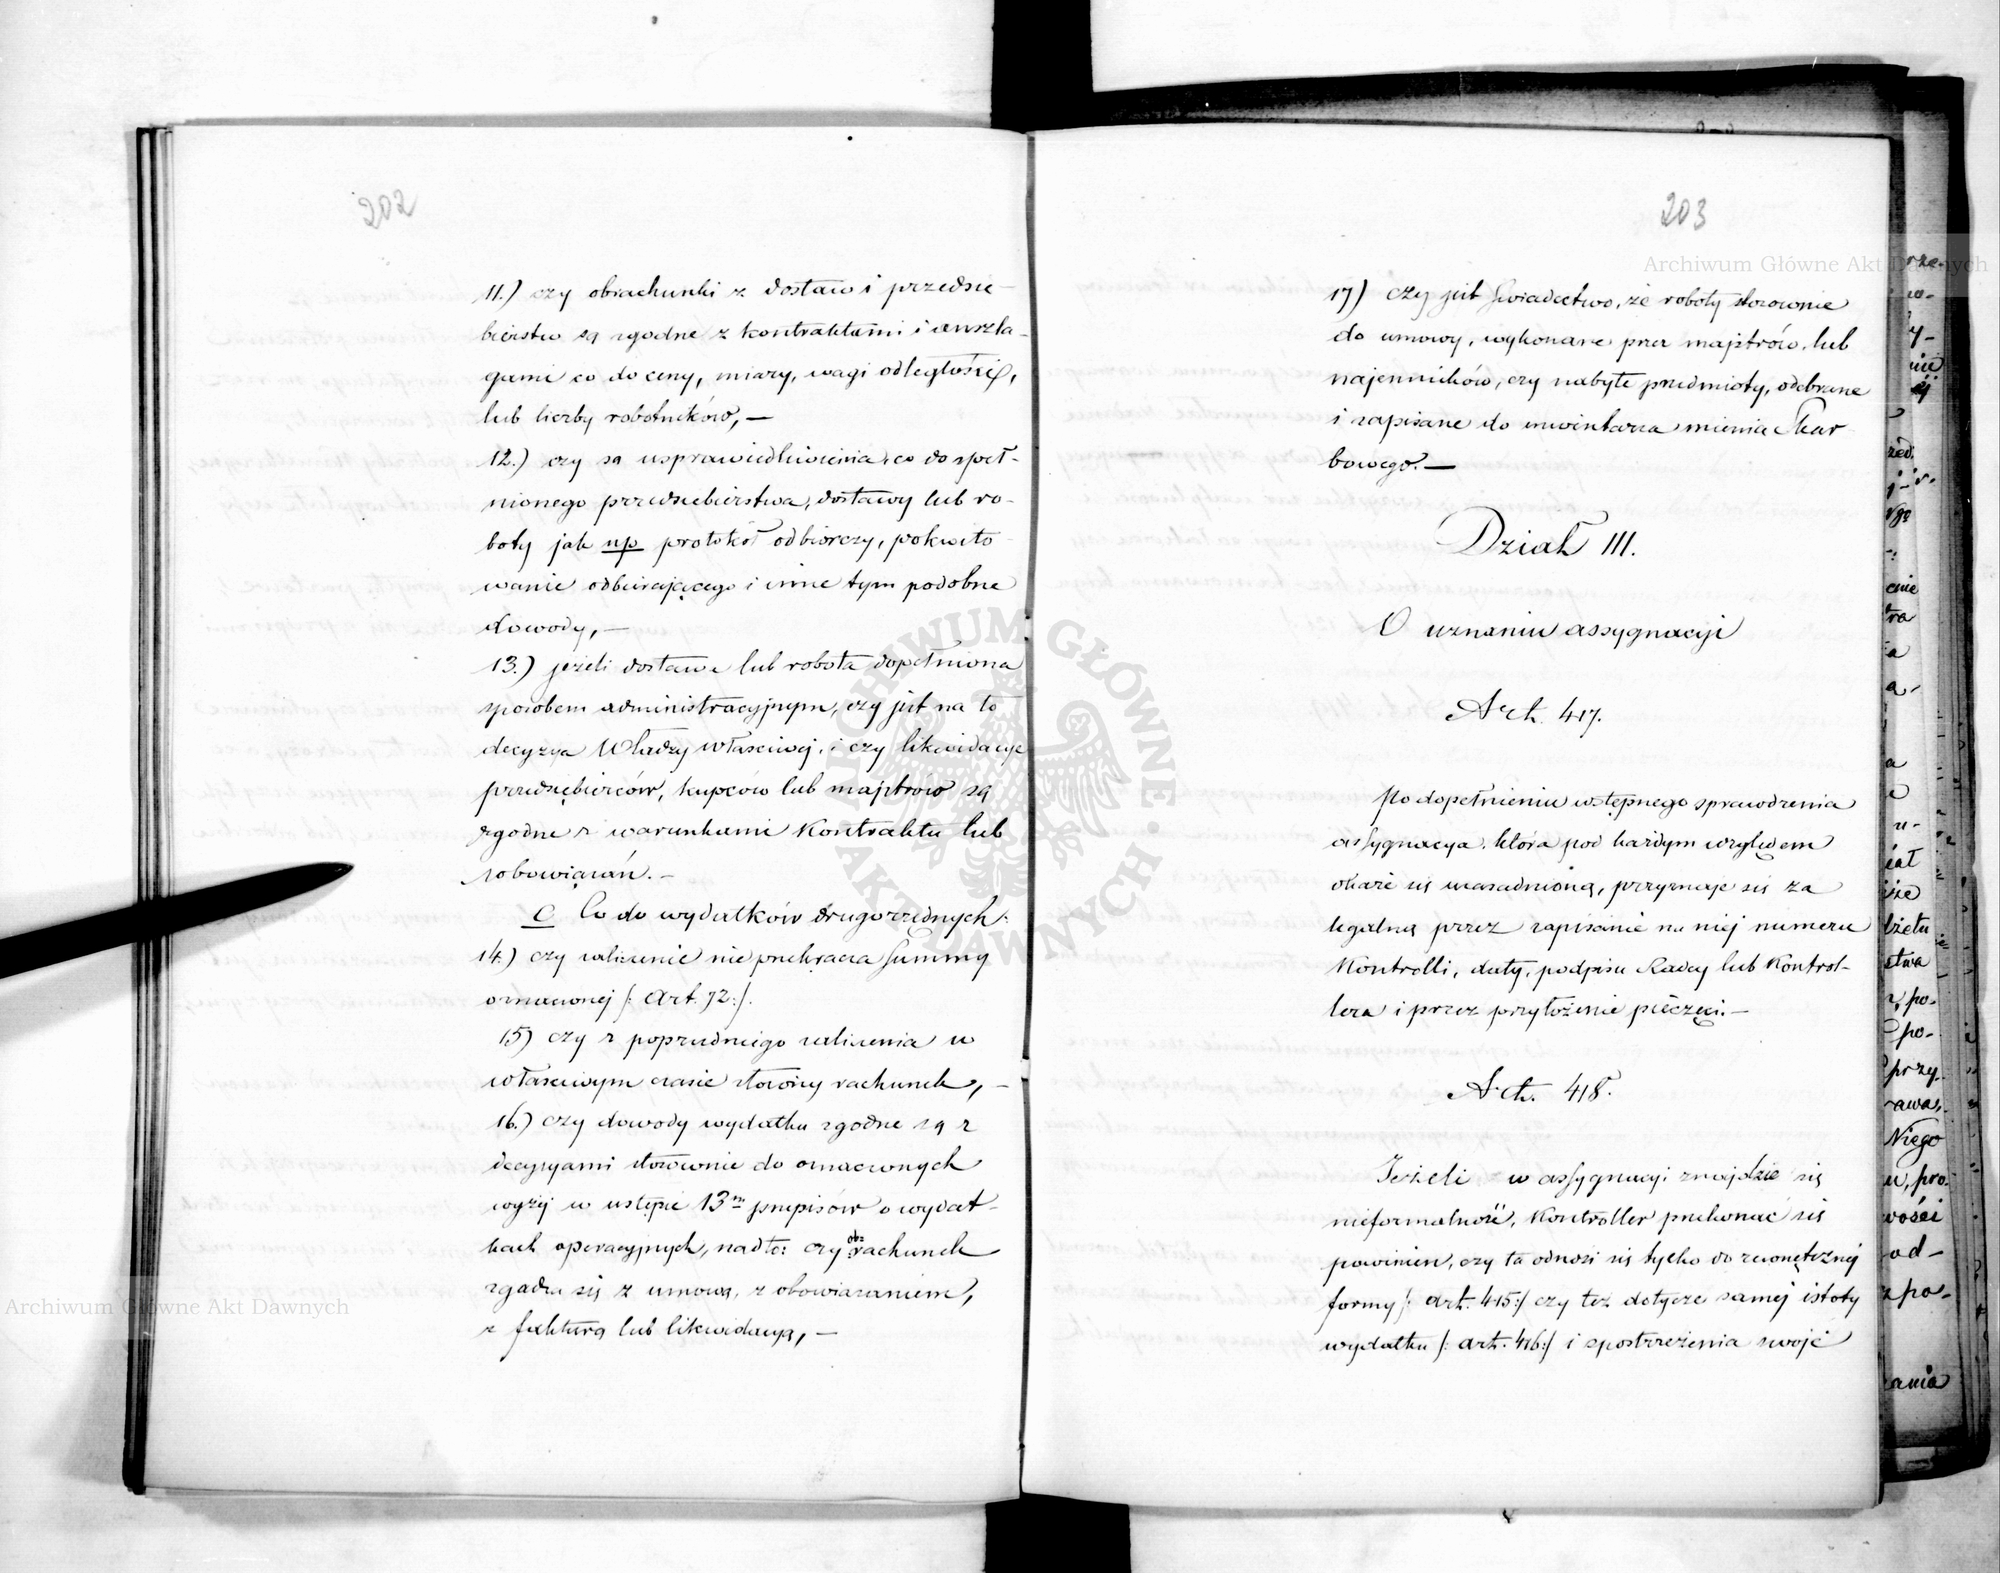 202
11.) czy obrachunki z dostaw i przedsię-
bierstw są zgodne z kontraktami i anszla-
gami co do ceny, miary, wagi odległości,
lub liczby robotników, —
12.) czy są usprawiedliwienia, co do speł-
nionego przedsiebierstwa, dostawy lub ro-
boty jak np protokół odbiorczy, pokwito-
wanie odbierającego i inne tym podobne
dowody, —
13.) jeżeli dostawa lub robota dopełniona
sposobem administracyjnym, czy jest na to
decyzya Władzy właściwej, i czy likwidacye
przedsiębierców, kupców lub majstrów są
zgodne z warunkami Kontraktu lub
zobowiązań. —
C Co do wydatków drugorzędnych.
14.) czy zaliczenie nie przekracza Summy
oznaczonej /: Art. 72 :/.
15) czy z poprzedniego zaliczenia w
właściwym czasie złożony rachunek, —
16.) czy dowody wydatku zgodne są z
decyzyami stosownie do oznaczonych
wyżej w ustępie 13m przepisów o wydat-
kach operacyjnych, nadto: czy obrachunek
zgadza się z umową, z obowiązaniem,
z fakturą lub likwidacyą, —
203
17) czy jest Świadectwo, że roboty stosownie
do umowy, wykonane przez majstrów, lub
najemników, czy nabyte przedmioty, odebrane
i zapisane do inwentarza mienia Skar
bowego. —
Dział III.
O uznaniu assygnacyi
Art. 417.
Po dopełnieniu wstępnego sprawdzenia
assygnacya, która pod każdym względem
okaże się uzasadnioną, przyznaje się za
legalną przez zapisanie na niej numeru
Kontrolli, daty, podpisu Radcy lub Kontrol-
lera i przez przyłożenie pieczęci. —
Art. 418.
Jeżeli w assygnacyi znajdzie się
nieformalność, Kontroller przekonać się
powinien, czy ta odnosi się tylko do zewnętrznej
formy /: art. 415 :/ czy też dotycze samej istoty
wydatku /: art. 416 :/ i spostrzeżenia swoje
Archiwum Główne Akt Dawnych
Archiwum Główne Akt Dawnych
ARCHIWUM GŁÓWNE AKT DAWNYCH